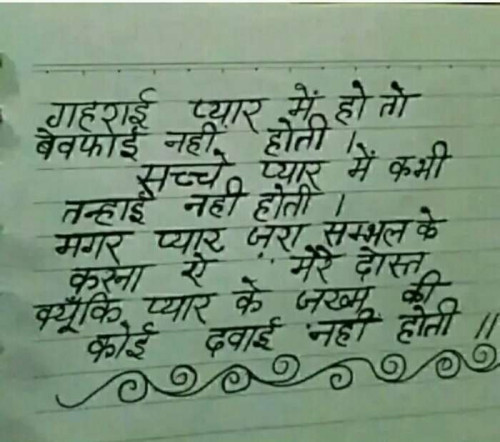 गहराई प्यार में हो तो
बेवफाई नही होती ।
सच्चे प्यार में कभी
तन्हाई नही होती ।
मगर प्यार ज़रा सम्भल के
करना ऐ मेरे दोस्त
क्यूँकि प्यार के जख्म की
कोई दवाई नही होती ॥